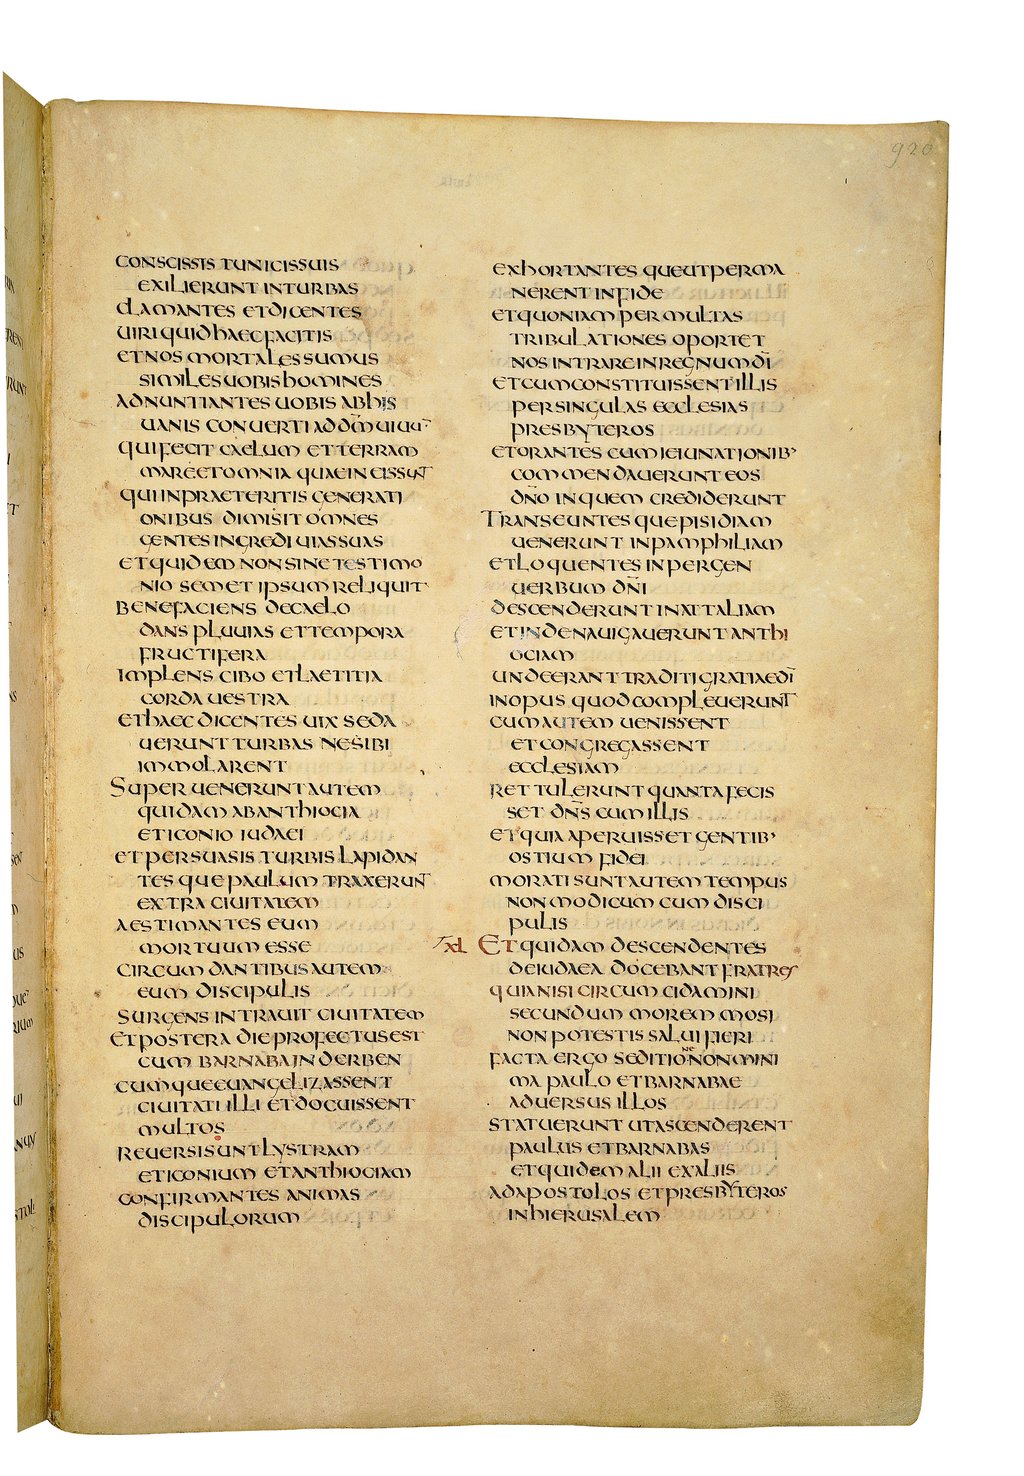 920
CONSCISSIS TUNICIS SUIS
EXILIERUNT IN TURBAS
CLAMANTES ET DICENTES
UIRI QUID HAEC FACITIS
ET NOS MORTALES SUMUS
SIMILES UOBIS HOMINES
ADNUNTIANTES UOBIS AB HIS
UANIS CONUERTI AD DM̄ UIUŪ
QUI FECIT CAELUM ET TERRAM
MARE ET OMNIA QUAE IN EIS SUNT
QUI IN PRAETERITIS GENERATI
ONIBUS DIMISIT OMNES
GENTES INGREDI UIAS SUAS
ET QUIDEM NON SINE TESTIMO
NIO SEMET IPSUM RELIQUIT
BENEFACIENS DE CAELO
DANS PLUUIAS ET TEMPORA
FRUCTIFERA
IMPLENS CIBO ET LAETITIA
CORDA UESTRA
ET HAEC DICENTES UIX SEDA
UERUNT TURBAS NE SIBI
IMMOLARENT
SUPERUENERUNT AUTEM
QUIDAM AB ANTHIOCIA
ET ICONIO IUDAEI
ET PERSUASIS TURBIS LAPIDAN
TESQUE PAULUM TRAXERUNT
EXTRA CIUITATEM
AESTIMANTES EUM
MORTUUM ESSE
CIRCUMDANTIBUS AUTEM
EUM DISCIPULIS
SURGENS INTRAUIT CIUITATEM
ET POSTERA DIE PROFECTUS EST
CUM BARNABA IN DERBEN
CUMQUE EUANGELIZASSENT
CIUITATI ILLI ET DOCUISSENT
MULTOS
REUERSI SUNT LYSTRAM
ET ICONIUM ET ANTHIOCIAM
CONFIRMANTES ANIMAS
DISCIPULORUM
EXHORTANTESQUE UT PERMA
NERENT IN FIDE
ET QUONIAM PER MULTAS
TRIBULATIONES OPORTET
NOS INTRARE IN REGNUM DĪ
ET CUM CONSTITUISSENT ILLIS
PER SINGULAS ECCLESIAS
PRESBYTEROS
ET ORANTES CUM IEIUNATIONIB'
COMMENDAUERUNT EOS
DN̄O IN QUEM CREDIDERUNT
TRANSEUNTESQUE PISIDIAM
UENERUNT IN PAMPHILIAM
ET LOQUENTES IN PERGEN
UERBUM DN̄I
DESCENDERUNT IN ATTALIAM
ET INDE NAUIGAUERUNT ANTHI
OCIAM
UNDE ERANT TRADITI GRATIAE DĪ
IN OPUS QUOD COMPLEUERUNT
CUM AUTEM UENISSENT
ET CONGREGASSENT
ECCLESIAM
RETTULERUNT QUANTA FECIS
SET DN̄S CUM ILLIS
ET QUIA APERUISSET GENTIB'
OSTIUM FIDEI
MORATI SUNT AUTEM TEMPUS
NON MODICUM CUM DISCI
PULIS
XL ET QUIDAM DESCENDENTES
DE IUDAEA DOCEBANT FRATRES
QUIA NISI CIRCUMCIDAMINI
SECUNDUM MOREM MOSI
NON POTESTIS SALUI FIERI
FACTA ERGO SEDITIONE NON MINI
MA PAULO ET BARNABAE
ADUERSUS ILLOS
STATUERUNT UT ASCENDERENT
PAULUS ET BARNABAS
ET QUIDEM ALII EX ALIIS
AD APOSTOLOS ET PRESBYTEROS
IN HIERUSALEM